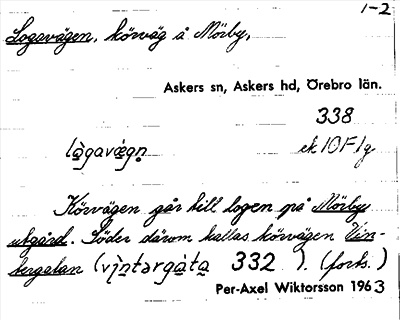 1-2
Logavägen, körväg å Mörby,
Askers sn, Askers hd, Örebro län.
338
ek 10 F 1 g
làgavä̀gn
Körvägen går till logen på Mörby
utgård. Söder därom kallas körvägen Vin-
tergatan (vìntərgàta 332 ). (forts.)
Per-Axel Wiktorsson 1963